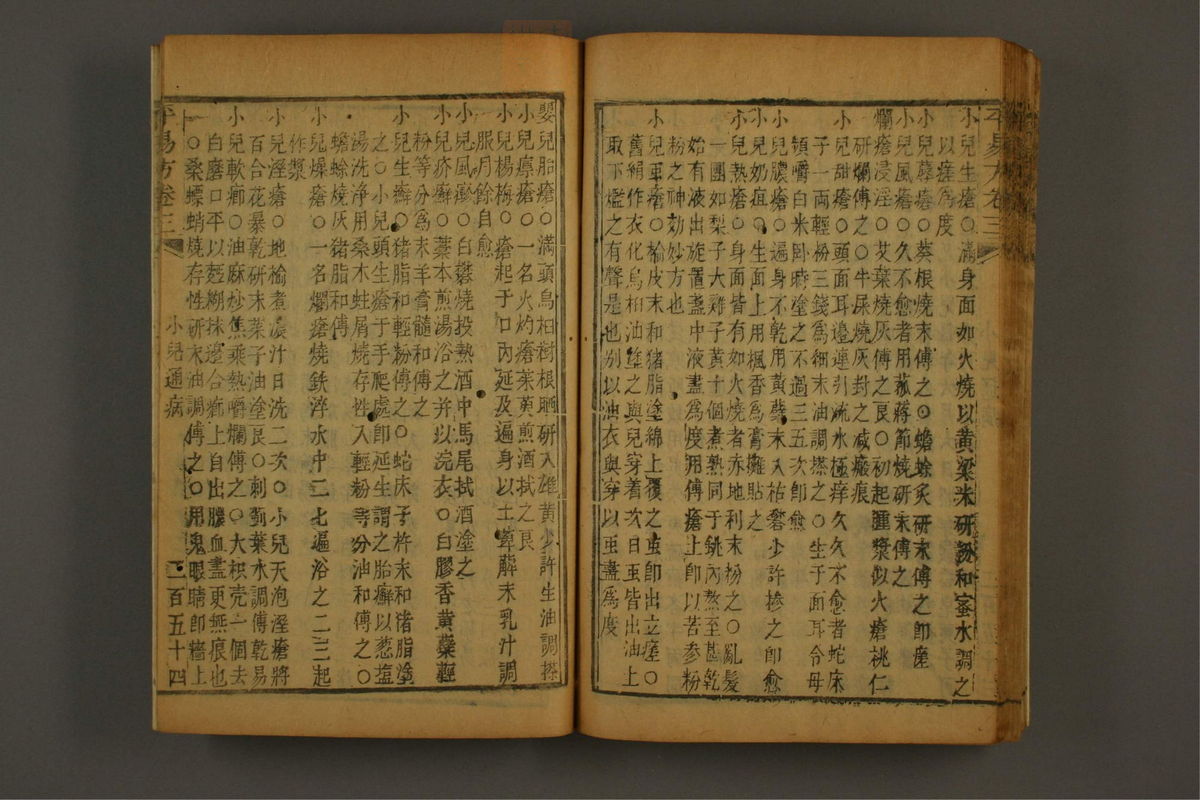 平易方卷三
小兒生瘡○滿身面如火燒以黃粱米研粉和蜜水調之
以痊爲度
小兒蓐瘡○葵根燒末傅之○蟾蜍炙研末傅之即痊
小兒風瘡○久不愈者用菰蔣節燒研末傅之
爛瘡浸淫○艾葉燒灰傅之良○初起腫漿似火瘡桃仁
研爛傅之○牛屎燒灰封之滅瘢痕
小兒甜瘡○頭面耳邊連引流水極痒久久不愈者蛇床
子一兩輕粉三錢爲細末油調搽之○生于面耳令母
頻嚼白米臥時塗之不過三五次即愈
小兒膿瘡○遍身不乾用黃蘗末入枯礬少許摻之即愈
小兒奶疽○生面上用楓香爲膏攤貼之
小兒熱瘡○身面皆有如火燒者赤地利末粉之○亂髮
一團如梨子大雞子黃十個煮熟同于銚內熬至甚乾
始有液出旋置盞中液盡爲度用傅瘡上即以苦參粉
粉之神効妙方也
小兒虫瘡○榆皮末和猪脂塗綿上覆之虫即出立瘥○
舊絹作衣化烏桕油塗之與兒穿着次日虫皆出油上
取下爁之有聲是也别以油衣與穿以虫盡爲度
嬰兒胎瘡○滿頭烏桕樹根晒研入雄黃少許生油調搽
小兒㾦瘡○一名火灼瘡茱萸煎酒拭之良
小兒楊梅○瘡起于口內延及遍身以土萆薢末乳汁調
服月餘自愈
小兒風瘮○白礬燒投熱酒中馬尾拭酒塗之
小兒疥癬○藁本煎湯浴之并以浣衣○白膠香黃蘗輕
粉等分爲末羊膏髓和傅之
小兒生癬○猪脂和輕粉傅之○蛇床子杵末和猪脂塗
之○小兒頭生瘡于手爬處即延生謂之胎癬以葱塩
湯洗净用桑木蛀屑燒存性入輕粉等分油和傅之○
蟾蜍燒灰猪脂和傅
小兒燥瘡○一名爛瘡燒鉄淬水中二七遍浴之二三起
作漿
小兒溼瘡○地榆煮濃汁日洗二次○小兒天泡溼瘡將
百合花暴乾研末菜子油塗良○刺薊葉水調傅乾易
小兒軟癤○油麻炒焦乘熱嚼爛傅之○大枳壳一個去
白磨口平以麪糊抹邊合癤上自出膿血盡更無痕也
○桑螵蛸燒存性研末油調傅之○用鬼眼睛即牆上
平易方卷三
小兒通病
二百五十四